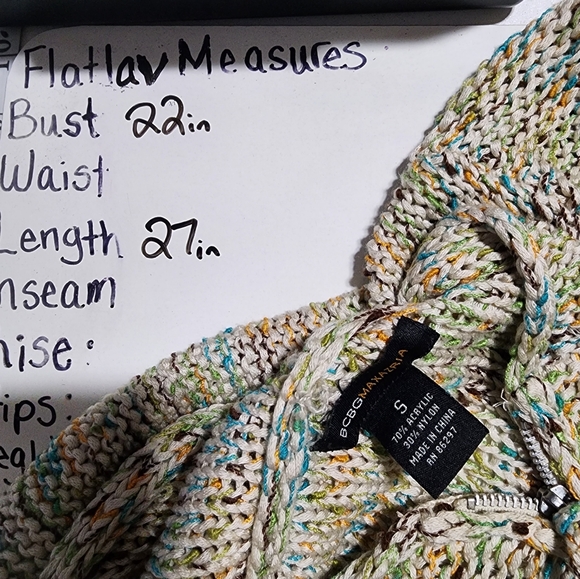 Flatlav Measures
Bust 22in
Waist
Length 27in
nseam
ise:
ips:
BCBGMAXAZRIA
S
70% ACRYLIC
30% NYLON
MADE IN CHINA
RN 85297